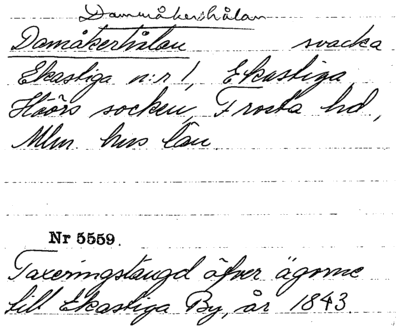 Dammåkershålan
Damåkershålan svacka
Ekastiga n:r 1, Ekastiga,
Höörs socken, Frosta hd,
Mlm. hus län
Nr 5559.
Taxeringslängd öfver ägorne
till Ekastiga By, år 1843